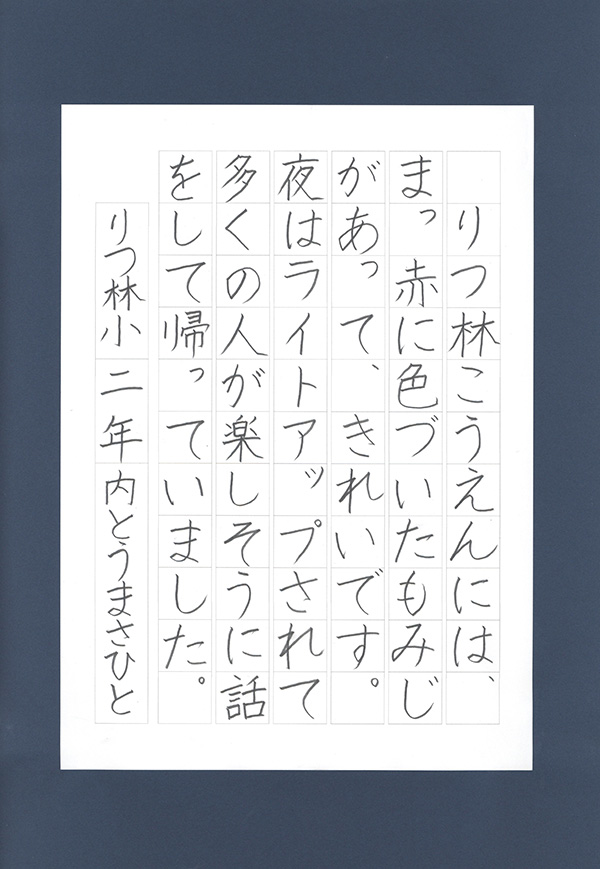 りつ林こうえんには、
まっ赤に色づいたもみじ
があって、きれいです。
夜はライトアップされて
多くの人が楽しそうに話
をして帰っていました。
りつ林小 二年 内とうまさひと